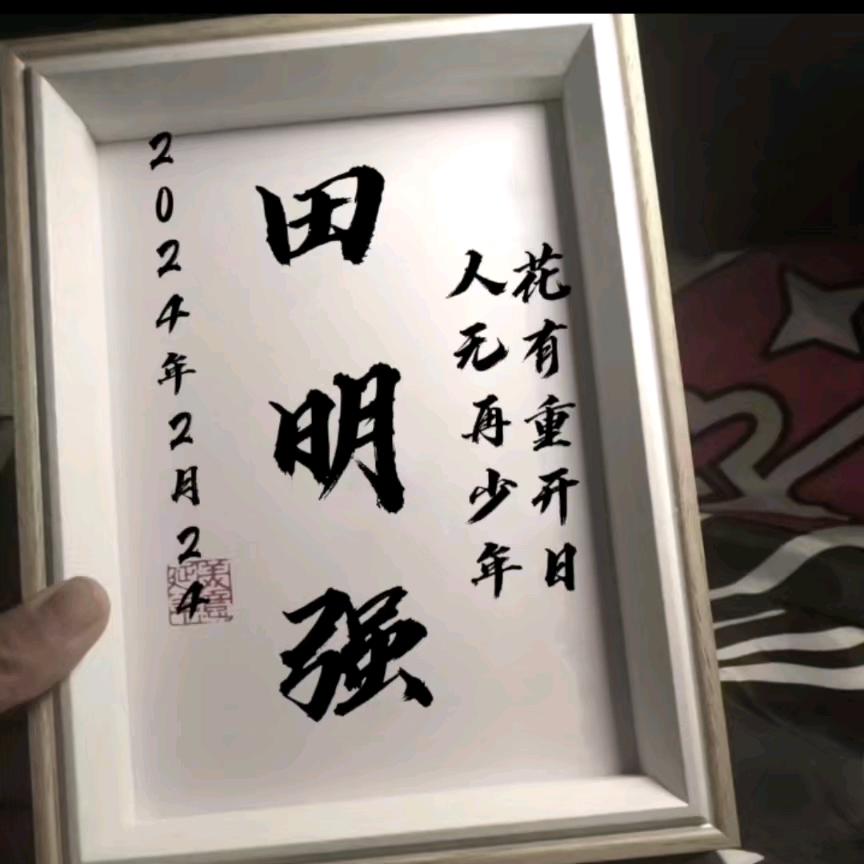 花有重开日
人无再少年
田明强
2024年2月24